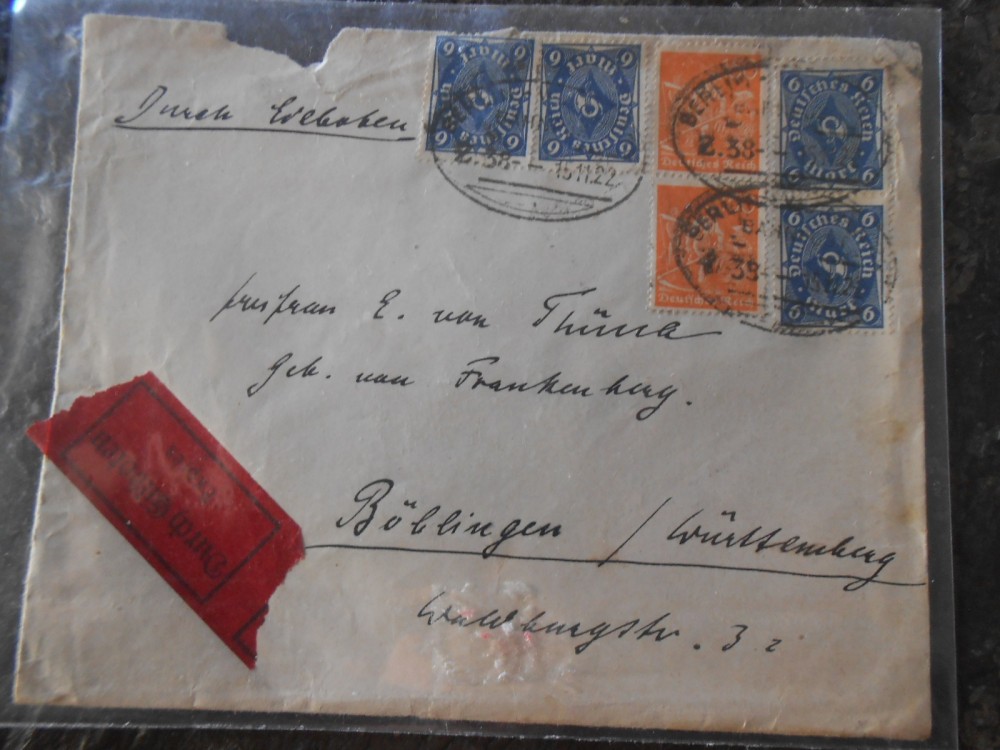 Durch Eilboten
6 Mark 6
Deutsches Reich
6 Mark 6
Deutsches Reich
Deutsches Reich
Deutsches Reich
6 6
Deutsches Reich
Mark
6 6
Deutsches Reich
Mark
BERLIN
Z.38
15.11.22
BERLIN
Z.38
BERLIN
Z.38
Freifrau E. von Thüna
geb. von Frankenberg.
Böblingen / Württemberg
Waldburgstr. 3
Durch Eilboten